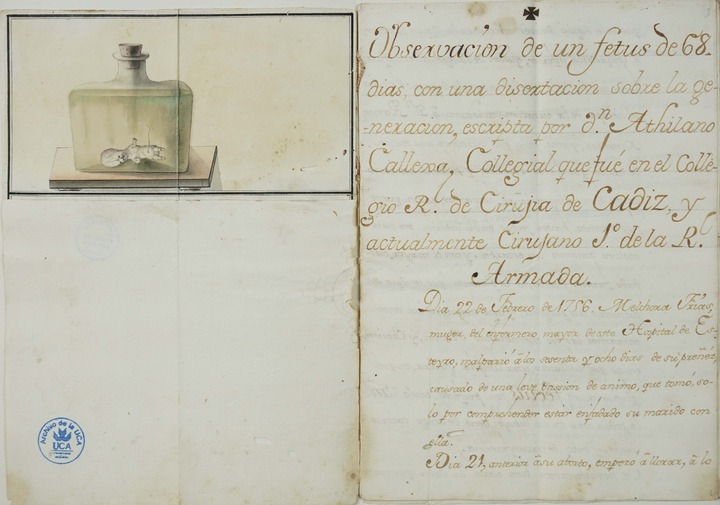 Observacion de un fetus de 68
dias, con una disertacion sobre la ge-
-neracion, escripta por d.n Athilano
Callexa, Collegial que fué en el Colle-
gio R.l de Cirujia de Cadiz, y
actualmente Cirujano 1.º de la R.l
Armada.
Dia 22 de Febrero de 1756. Melchora Frias,
muger, del enfermero mayor de este Hospital de Es-
teyro, malparió à los sesenta y ocho dias de su preñez,
causado de una leve passion de animo, que tomó, so-
lo por comprehender estár enfadado su marido con
ella.
Dia 21, anterior à su aborto, empezó à llorar, à lo
Archivo de la UCA
UCA